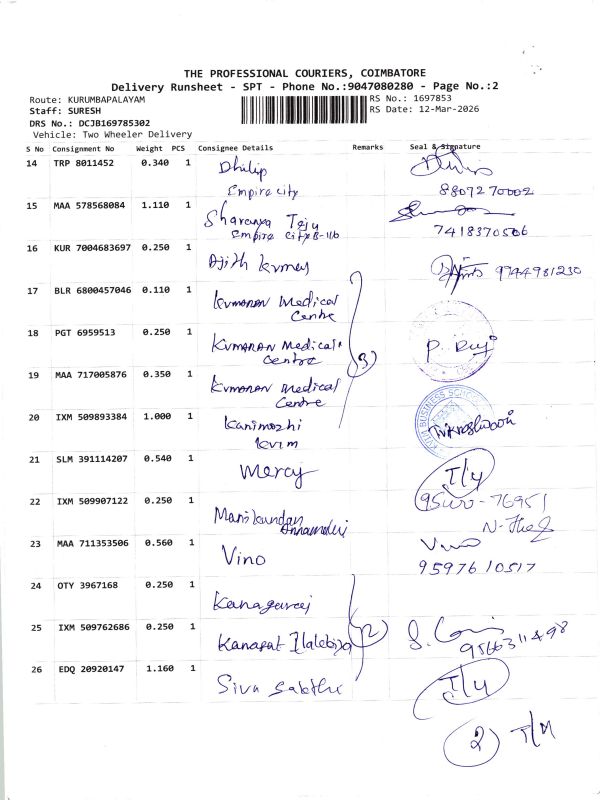 THE PROFESSIONAL COURIERS, COIMBATORE
Delivery Runsheet - SPT - Phone No.:9047080280 - Page No.:2
Route: KURUMBAPALAYAM RS No.: 1697853
Staff: SURESH RS Date: 12-Mar-2026
DRS No.: DCJB169785302
Vehicle: Two Wheeler Delivery
S No Consignment No Weight PCS Consignee Details Remarks Seal & Signature
14 TRP 8011452 0.340 1 Dhilip
Empire city 8807270002
15 MAA 578568084 1.110 1 Sharanya Teju
Empire city B-116 7418370506
16 KUR 7004683697 0.250 1 Ajith kumar 9944981230
17 BLR 6800457046 0.110 1 KUMARAN Medical
Centre
18 PGT 6959513 0.250 1 KUMARAN Medical
Centre (3) P. Raji
19 MAA 717005876 0.350 1 KUMARAN Medical
Centre
20 IXM 509893384 1.000 1 Kanimozhi
BUSINESS SCHOOL
21 SLM 391114207 0.540 1 Mercy I/4
22 IXM 509907122 0.250 1 Manikandan
Annamalai
23 MAA 711353506 0.560 1 Vino Vino
9597610517
24 OTY 3967168 0.250 1 Kanagaraj
25 IXM 509762686 0.250 1 (2)
26 EDQ 20920147 1.160 1 Siva Sakthi I/4
2